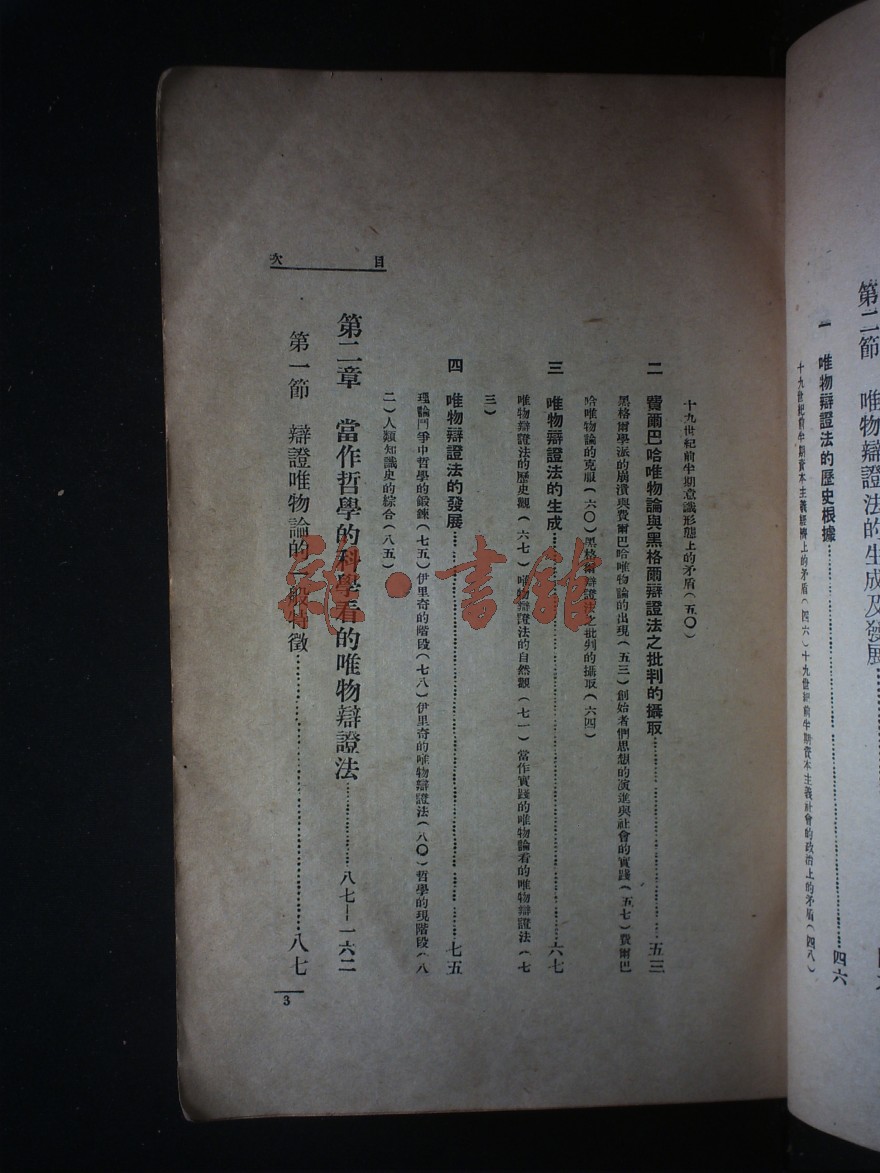 第二節　唯物辯證法的生成及發展
一　唯物辯證法的歷史根據……四六
十九世紀前半期資本主義經濟上的矛盾（四六）十九世紀前半期資本主義社會的政治上的矛盾（四八）
目次
十九世紀前半期意識形態上的矛盾（五〇）
二　費爾巴哈唯物論與黑格爾辯證法之批判的攝取……五三
黑格爾學派的崩潰與費爾巴哈唯物論的出現（五三）創始者們思想的演進與社會的實踐（五七）費爾巴
哈唯物論的克服（六〇）黑格爾辯證法之批判的攝取（六四）
三　唯物辯證法的生成……六七
唯物辯證法的歷史觀（六七）唯物辯證法的自然觀（七一）當作實踐的唯物論看的唯物辯證法（七
三）
四　唯物辯證法的發展……七五
理論鬥爭中哲學的鍛鍊（七五）伊里奇的階段（七八）伊里奇的唯物辯證法（八〇）哲學的現階段（八
二）人類知識史的綜合（八五）
第二章　當作哲學的科學看的唯物辯證法……八七—一六二
第一節　辯證唯物論的一般特徵……八七
3
雜·書館